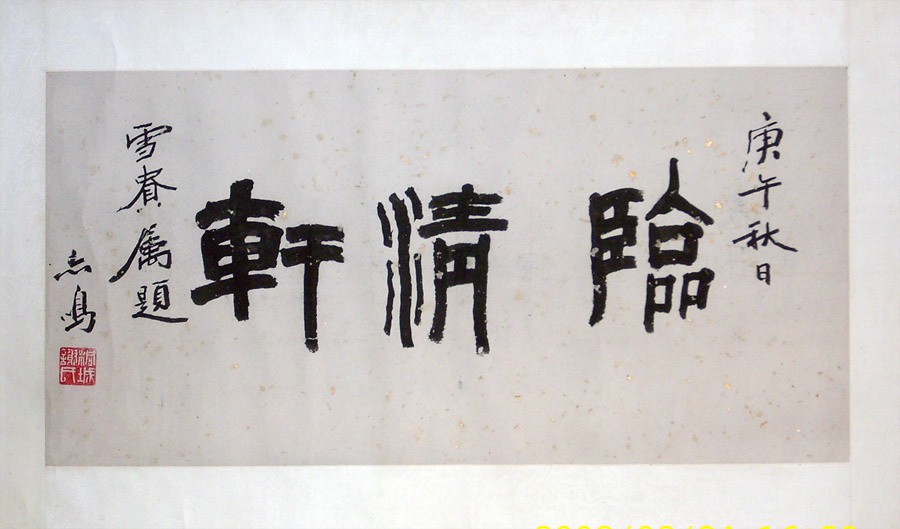 庚午秋日
臨清軒
雪賁屬題
志鳴